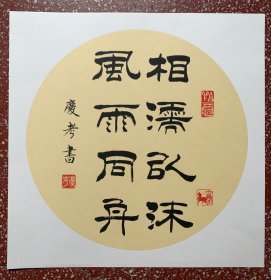 相濡以沫
風雨同舟
慶考書